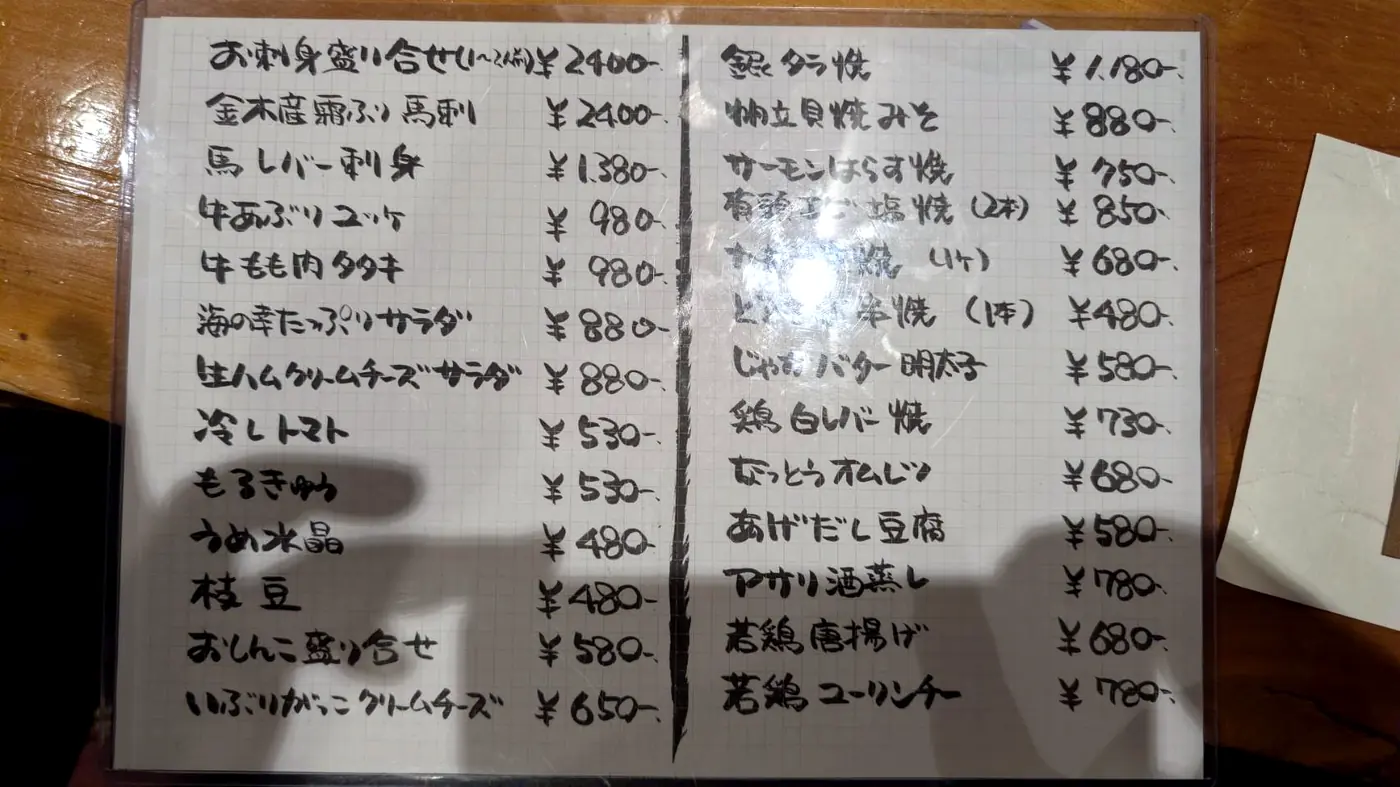 お刺身盛り合せ(1〜2人前) ¥2400-.
金木産霜ふり馬刺 ¥2400-.
馬レバー刺身 ¥1.380-.
牛あぶりユッケ ¥980-.
牛もも肉タタキ ¥980-.
海の幸たっぷりサラダ ¥880-.
生ハムクリームチーズサラダ ¥880-.
冷しトマト ¥530-.
もろきゅう ¥530-.
うめ水晶 ¥480-.
枝豆 ¥480-.
おしんこ盛り合せ ¥580-.
いぶりがっこクリームチーズ ¥650-.
銀ダラ焼 ¥1.180-.
帆立貝焼みそ ¥880-.
サーモンはらす焼 ¥750-.
有頭エビ塩焼 (2本) ¥850-.
焼 (1ヶ) ¥680-.
串焼 (1本) ¥480-.
じゃがバター明太子 ¥580-.
鶏白レバー焼 ¥730-.
なっとうオムレツ ¥680-.
あげだし豆腐 ¥580-.
アサリ酒蒸し ¥780-.
若鶏唐揚げ ¥680-.
若鶏ユーリンチー ¥780-.